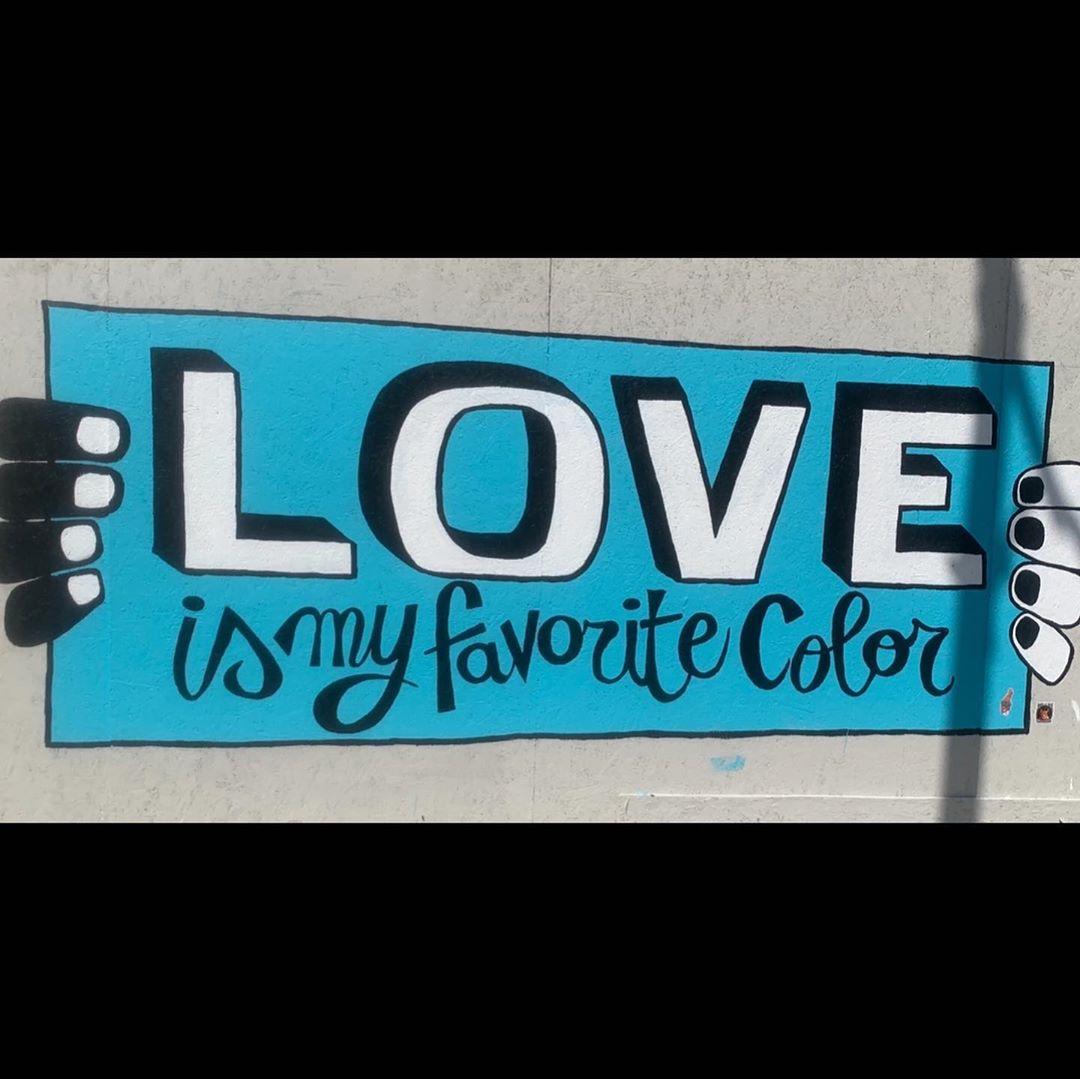 LOVE
is my favorite Color